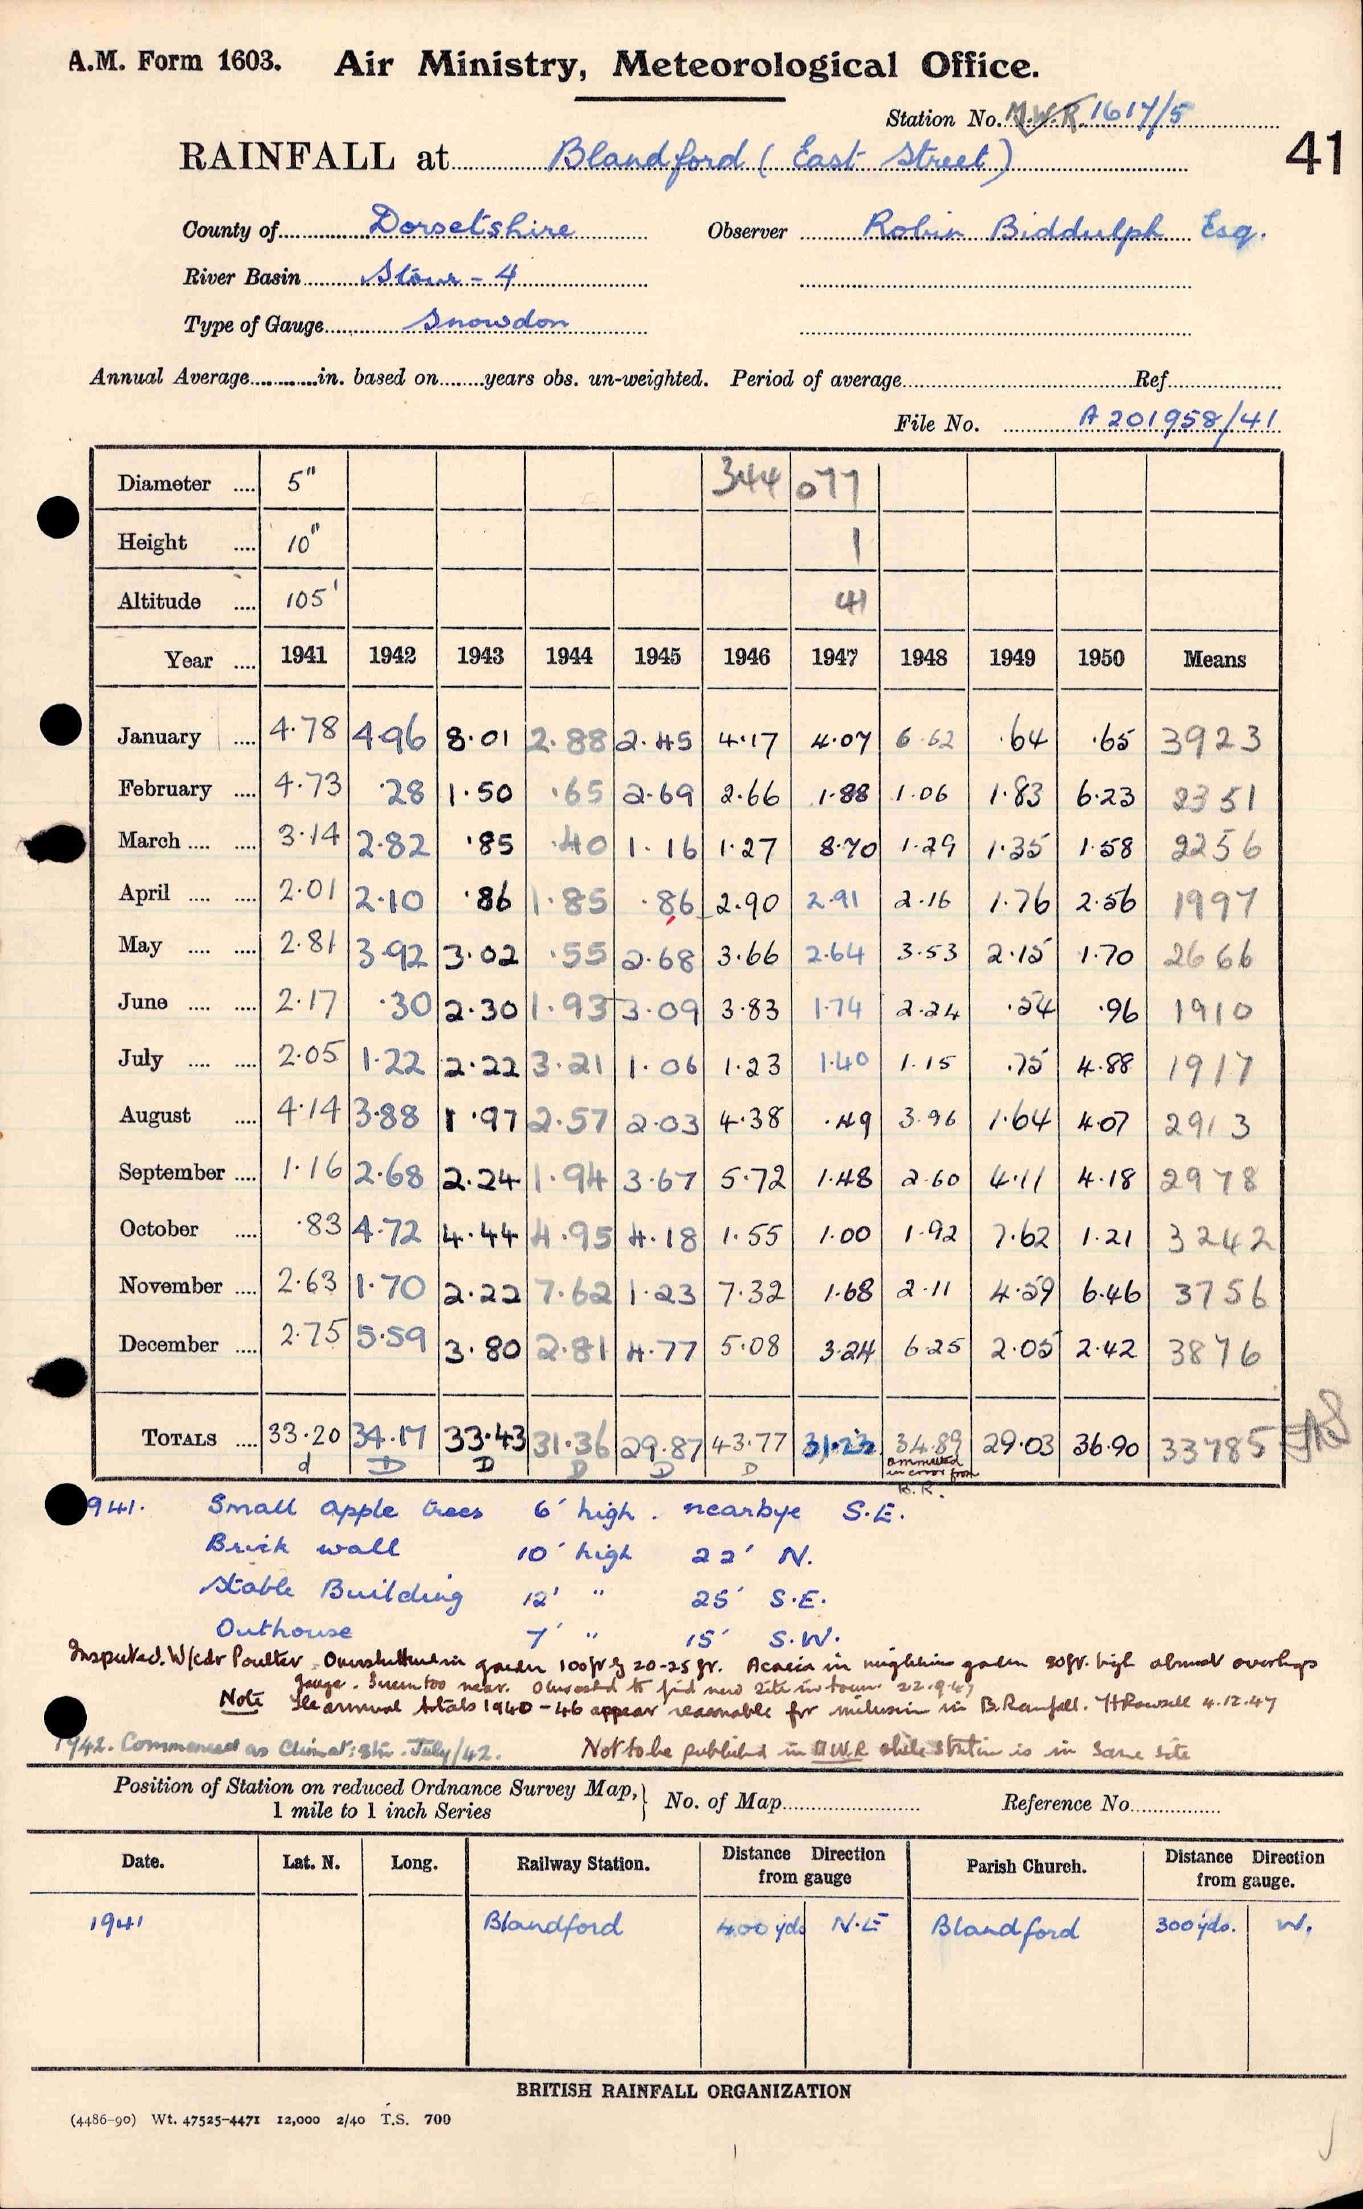 A.M. Form 1603. Air Ministry, Meteorological Office.
Station No. M.W.R. 1617/5
41
RAINFALL at Blandford (East Street)
County of Dorsetshire Observer Robin Biddulph Esq.
River Basin Stour - 4
Type of Gauge Snowdon
Annual Average in. based on years obs. un-weighted. Period of average Ref
File No. A 201958/41
Diameter 5" 344 077
Height 10" 1
Altitude 105' 41
Year 1941 1942 1943 1944 1945 1946 1947 1948 1949 1950 Means
January 4.78 4.96 8.01 2.88 2.45 4.17 4.07 6.62 .64 .65 3923
February 4.73 .28 1.50 .65 2.69 2.66 1.88 1.06 1.83 6.23 2351
March 3.14 2.82 .85 .40 1.16 1.27 8.70 1.29 1.35 1.58 2256
April 2.01 2.10 .86 1.85 .86 2.90 2.91 2.16 1.76 2.56 1997
May 2.81 3.92 3.02 .55 2.68 3.66 2.64 3.53 2.15 1.70 2666
June 2.17 .30 2.30 1.93 3.09 3.83 1.74 2.24 .54 .96 1910
July 2.05 1.22 2.22 3.21 1.06 1.23 1.40 1.15 .75 4.88 1917
August 4.14 3.88 1.97 2.57 2.03 4.38 .49 3.96 1.64 4.07 2913
September 1.16 2.68 2.24 1.94 3.67 5.72 1.48 2.60 4.11 4.18 2978
October .83 4.72 4.44 4.95 4.18 1.55 1.00 1.92 7.62 1.21 3242
November 2.63 1.70 2.22 7.62 1.23 7.32 1.68 2.11 4.59 6.46 3756
December 2.75 5.59 3.80 2.81 4.77 5.08 3.24 6.25 2.05 2.42 3876
TOTALS 33.20 34.17 33.43 31.36 29.87 43.77 31.23 34.89 29.03 36.90 33785
d D D D D D ommitted in error from B.R.
1941. Small apple trees 6' high. nearbye S.E.
Brick wall 10' high 22' N.
Stable Building 12' " 25' S.E.
Outhouse 7' " 15' S.W.
Inspected. W/cdr Poulter. garden 100ft by 20-25ft. Acacia in neighbring garden 30ft. high almost overhangs
gauge. too near. to find new site in town. 22.9.47
Note The annual totals 1940-46 appear reasonable for inclusion in B. Rainfall. 4.12.47
1942. Commenced as Climat: Stn. July/42. Not to be published in M.W.R while station is in same site
Position of Station on reduced Ordnance Survey Map, 1 mile to 1 inch Series No. of Map Reference No.
Date. Lat. N. Long. Railway Station. Distance Direction from gauge Parish Church. Distance Direction from gauge.
1941 Blandford 400 yds N.E Blandford 300 yds. W.
BRITISH RAINFALL ORGANIZATION
(4486-90) Wt. 47525-4471 12,000 2/40 T.S. 700